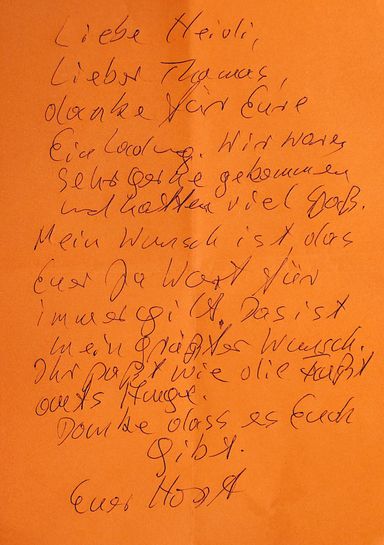 Liebe Heidi,
Lieber Thomas,
danke für Eure
Einladung. Wir waren
sehr gerne gekommen
und hatten viel Spaß.
Mein Wunsch ist, das
Euer Ja Wort für
immer gilt. Das ist
mein größter Wunsch.
Ihr paßt wie die Faust
aufs Auge.
Danke dass es Euch
gibt.
Euer Horst